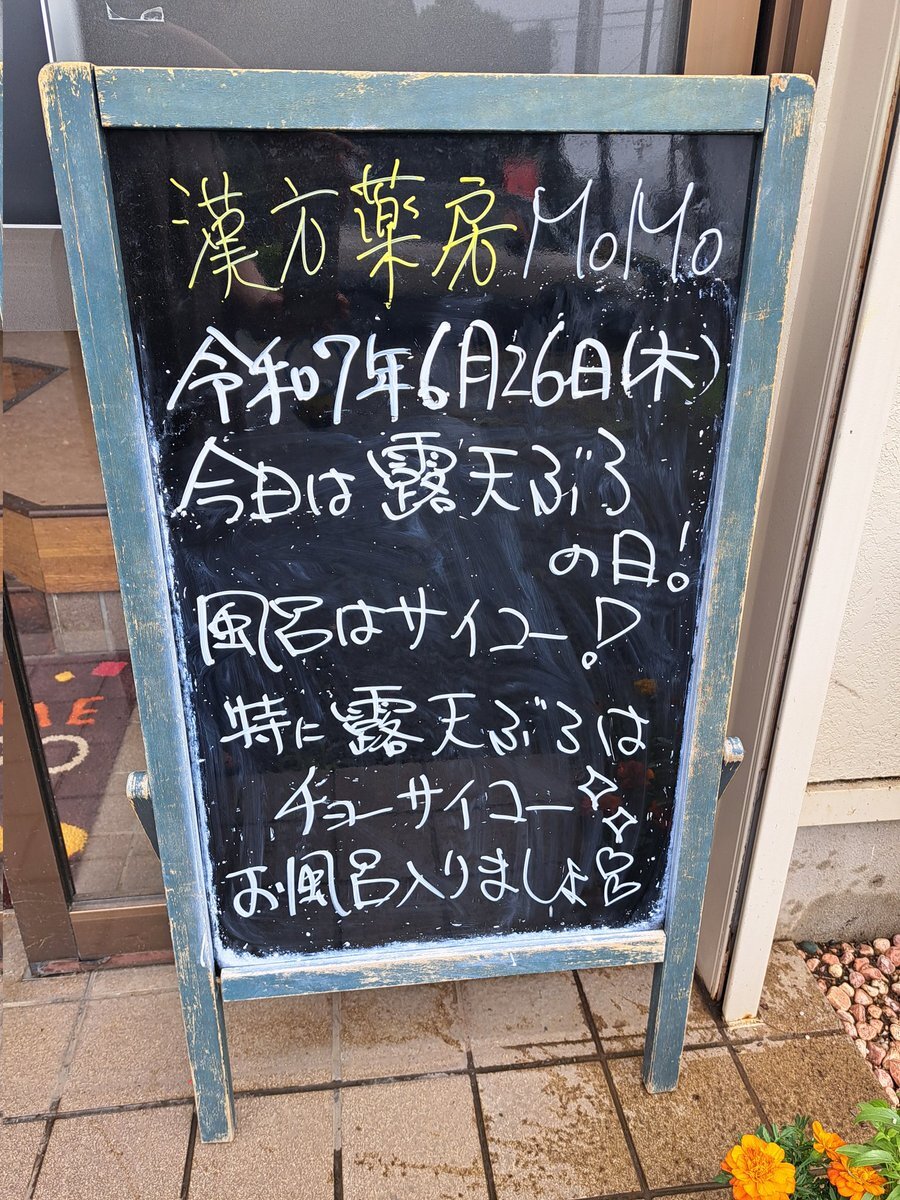 漢方薬房MoMo
令和7年6月26日(木)
今日は露天ぶろ
の日!
風呂はサイコー!
特に露天ぶろは
チョーサイコー
お風呂入りましょ